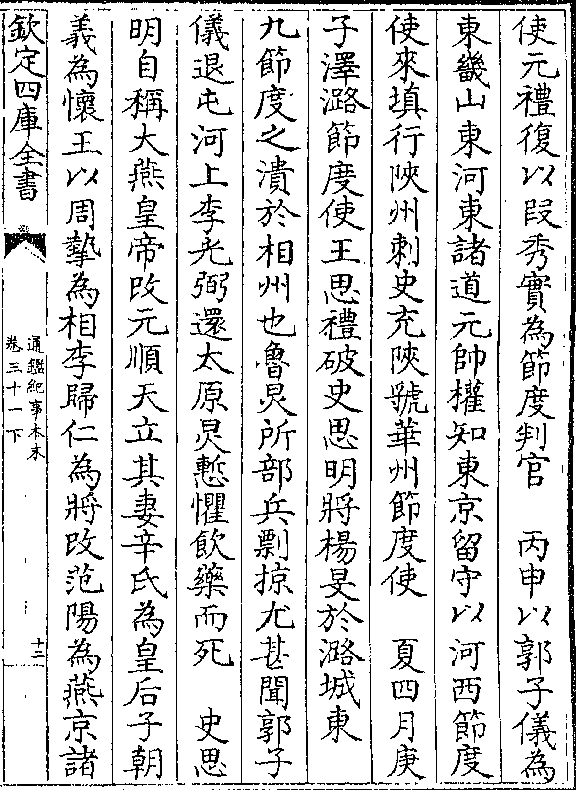 使元禮復以段秀實為節度判官　丙申以郭子儀為
東畿山東河東諸道元帥權知東京留守以河西節度
使來填行陜州刺史充陜虢華州節度使　夏四月庚
子澤潞節度使王思禮破史思明將楊旻於潞城東
九節度之潰於相州也魯炅所部兵剽掠尤甚聞郭子
儀退屯河上李光弼還太原炅慙懼飲藥而死　史思
明自稱大燕皇帝改元順天立其妻辛氏為皇后子朝
義為懷王以周摯為相李歸仁為將改范陽為燕京諸
欽定四庫全書
通鑑紀事本末
卷三十一下
十二